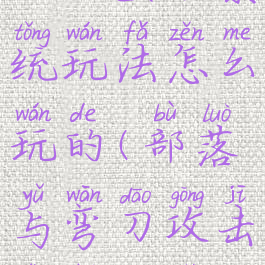 tǒng wán fǎ zěn me
统玩法怎么
wán de bù luò
玩的(部落
yǔ wān dāo gōng jī
与弯刀攻击